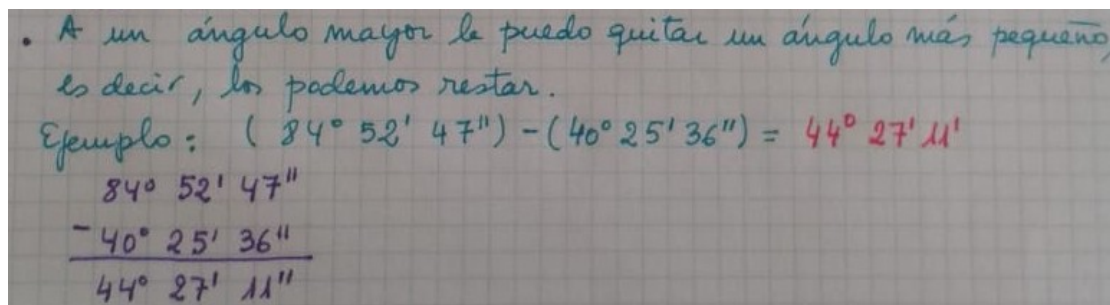 . A un ángulo mayor le puedo quitar un ángulo más pequeño,
es decir, los podemos restar.
Ejemplo: ( 84° 52' 47'') - (40° 25' 36'') = 44° 27' 11'
84° 52' 47''
- 40° 25' 36''
44° 27' 11''